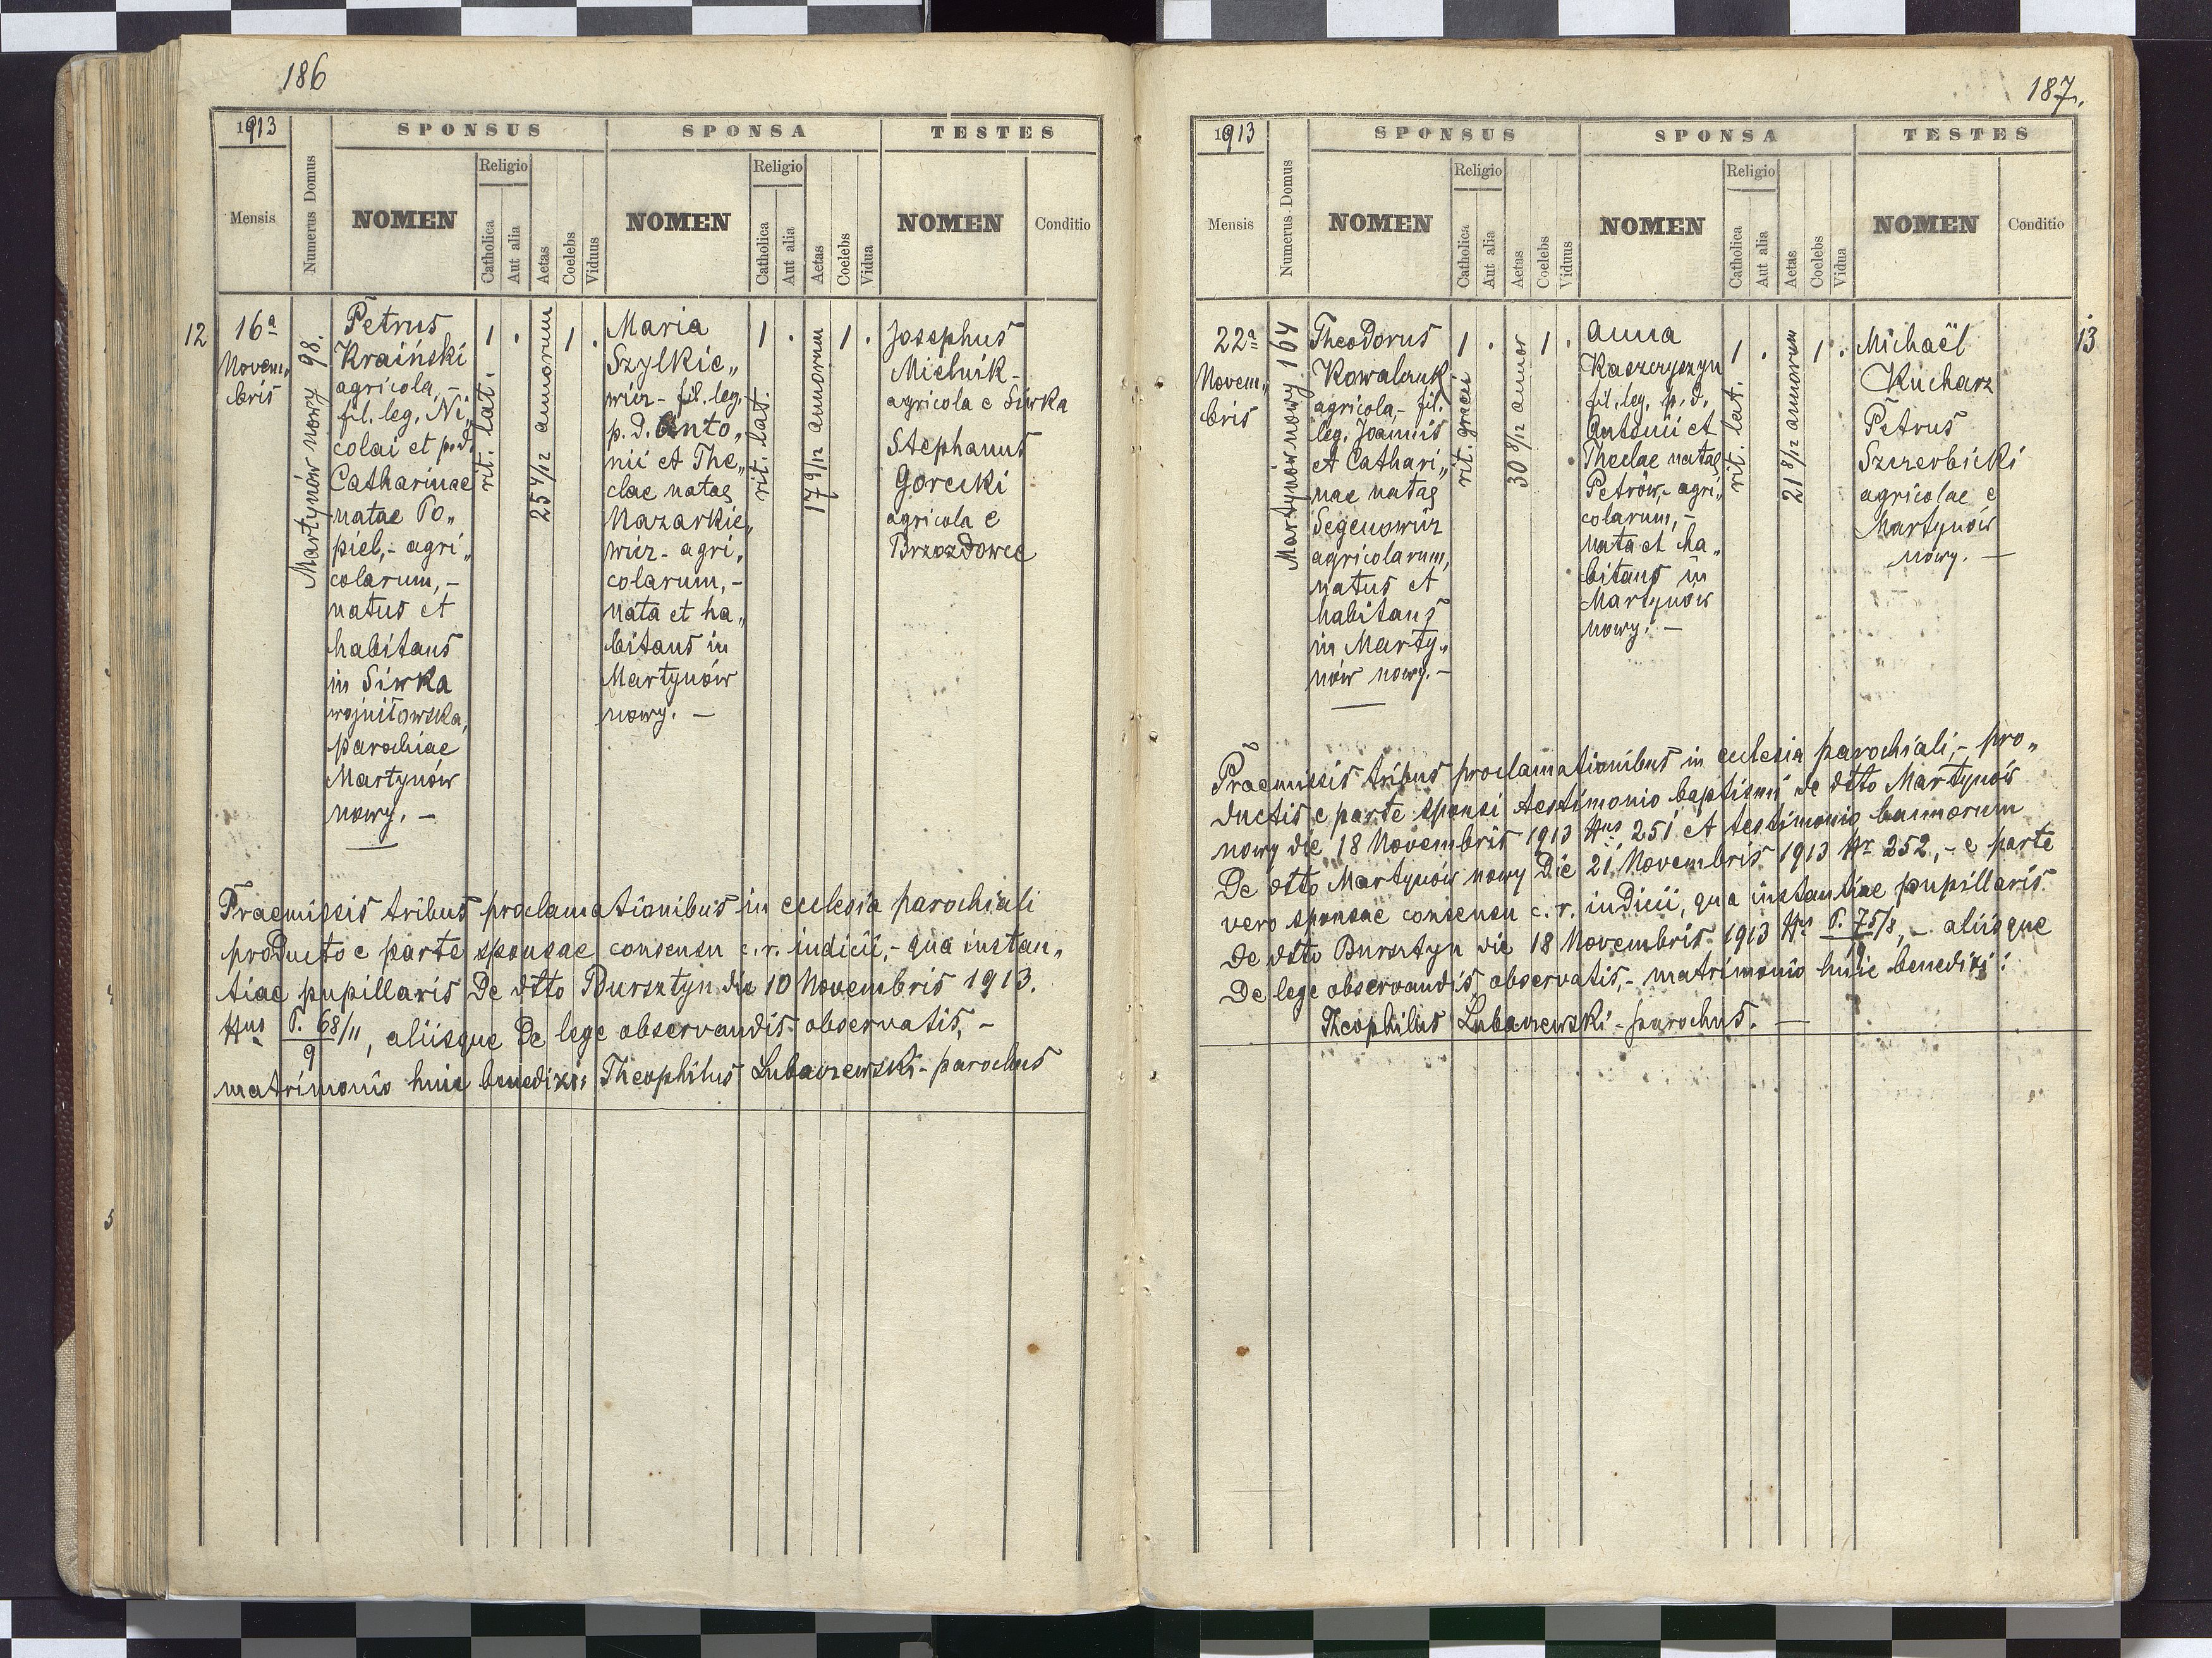 186
1913
SPONSUS
SPONSA
TESTES
Mensis
Numerus Domus
NOMEN
Religio
Catholica
Aut alia
Aetas
Coelebs
Viduus
NOMEN
Religio
Catholica
Aut alia
Aetas
Coelebs
Vidua
NOMEN
Conditio
12
16a
Novem„
bris
Martynów nowy 98.
Petrus
Kraiński
agricola, -
fil. leg. Ni„
colai et p. d.
Catharinae
natae Po„
piel, - agri„
colarum, -
natus et
habitans
in Siwka
wojniłowska,
parochiae
Martynów
nowy. -
1
rit. lat.
.
25 4/12 annorum
1
.
Maria
Szylkie„
wicz - fil. leg.
p. d. Anto„
nii et The„
clae natae
Nazarkie„
wicz - agri„
colarum, -
nata et ha„
bitans in
Martynów
nowy. -
1
rit. lat.
.
17 9/12 annorum
1
.
Josephus
Mielnik -
agricola e Siwka
Stephanus
Gorecki
agricola e
Brzozdowce
Praemissis tribus proclamationibus in ecclesia parochiali
producto e parte sponsae consensu c. r. iudicii, - qua instan„
tiae pupillaris de dtto Bursztyn die 10 Novembris 1913.
Nus P. 68/11, aliisque de lege observandis observatis, -
9
matrimonio huic benedixi: Theophilus Lubaczewski - parochus
187.
1913
SPONSUS
SPONSA
TESTES
Mensis
Numerus Domus
NOMEN
Religio
Catholica
Aut alia
Aetas
Coelebs
Viduus
NOMEN
Religio
Catholica
Aut alia
Aetas
Coelebs
Vidua
NOMEN
Conditio
22a
Novem„
bris
Martynów nowy 164
Theodorus
Kowalczuk
agricola, - fil.
leg. Joannis
et Cathari„
nae natae
Segenowicz
agricolarum,
natus et
habitans
in Marty„
nów nowy. -
1
rit. graeci
.
30 8/12 annor
1
.
Anna
Kaszczyszyn
fil. leg. p. d.
Antonii et
Theclae natae
Petrów, - agri„
colarum, -
nata et ha„
bitans in
Martynów
nowy. -
1
rit. lat.
.
21 8/12 annorum
1
.
Michaël
Kucharz
Petrus
Szczerbicki
agricolae e
Martynów
nowy. -
13
Praemissis tribus proclamationibus in ecclesia parochiali, - pro„
ductis e parte sponsi testimonio baptismi de dtto Martynów
nowy die 18 Novembris 1913 Nus 251 et testimonio bannorum
de dtto Martynów nowy die 21 Novembris 1913 Nr 252, - e parte
vero sponsae consensu c. r. iudicii, qua instantiae pupillaris
de dtto Bursztyn die 18 Novembris 1913 Nus P. 75/8, - aliisque
9
de lege observandis observatis, - matrimonio huic benedixi:
Theophilus Lubaczewski - parochus. -